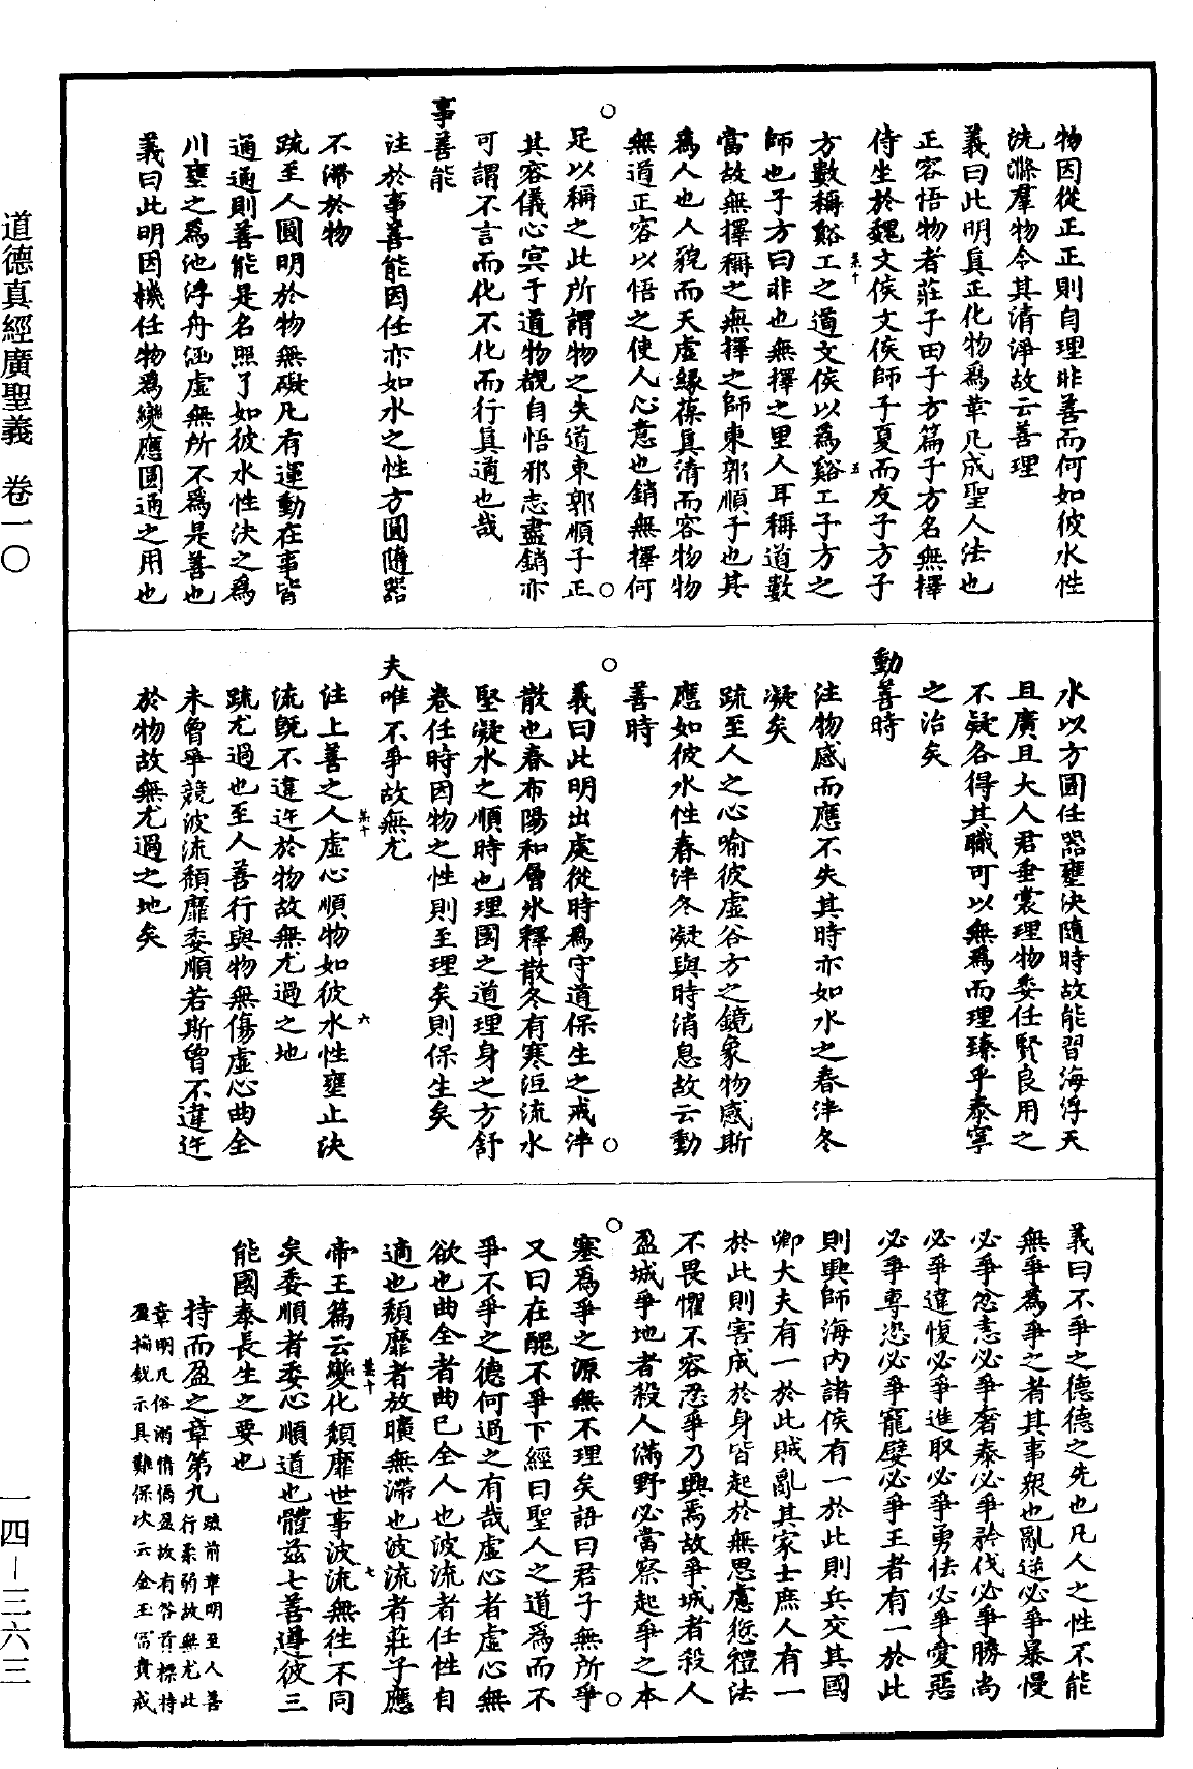 物因從正正則自理非善而何如彼水性
洗滌羣物令其清淨故云善理
義曰此明真正化物爲革凡成聖人法也
正容悟物者莊子田子方篇子方名無擇
侍坐於魏文侯文侯師子夏而友子方子
方數稱谿工之道文侯以爲谿工子方之
師也子方曰非也無擇之里人耳稱道數
當故無擇稱之無擇之師東郭順子也其
爲人也人貌而天虛緣葆真清而容物物
無道正容以悟之使人心意也銷無擇何
足以稱之此所謂物之失道東郭順子正
其容儀心冥于道物覩自悟邪志盡銷亦
可謂不言而化不化而行真道也哉
事善能
注於事善能因任亦如水之性方圓隨器
不滯於物
疏至人圓明於物無礙凡有運動在事皆
通通則善能是名照了如彼水性決之爲
川壅之爲池浮舟涵虛無所不爲是善也
義曰此明因機任物爲變應圓通之用也
水以方圓任器壅決隨時故能習海浮天
且廣且大人君垂裳理物委任賢良用之
不疑各得其職可以無爲而理臻乎泰寧
之治矣
動善時
注物感而應不失其時亦如水之春泮冬
凝矣
疏至人之心喻彼虛谷方之鏡象物感斯
應如彼水性春泮冬凝與時消息故云動
善時
義曰此明出處從時爲守道保生之戒泮
散也春布陽和層氷釋散冬有寒沍流水
堅凝水之順時也理國之道理身之方舒
卷任時因物之性則至理矣則保生矣
夫唯不爭故無尤
注上善之人虛心順物如彼水性壅止決
流既不違迕於物故無尤過之地
疏尤過也至人善行與物無傷虛心曲全
未曾爭競波流頹靡委順若斯曾不違迕
於物故無尤過之地矣
義曰不爭之德德之先也凡人之性不能
無爭爲爭之者其事衆也亂逆必爭暴慢
必爭忿恚必爭奢泰必爭矜伐必爭勝尚
必爭違愎必爭進取必爭勇怯必爭愛惡
必爭專恣必爭寵嬖必爭王者有一於此
則興師海內諸侯有一於此則兵交其國
卿大夫有一於此賊亂其家士庶人有一
於此則害成於身皆起於無思慮愆禮法
不畏懼不容忍爭乃興焉故爭城者殺人
盈城爭地者殺人滿野必當察起爭之本
塞爲爭之源無不理矣語曰君子無所爭
又曰在醜不爭下經曰聖人之道爲而不
爭不爭之德何過之有哉虛心者虛心無
欲也曲全者曲己全人也波流者任性自
適也頹靡者放曠無滯也波流者莊子應
帝王篇云變化頹靡世事波流無往不同
矣委順者委心順道也體茲七善導彼三
能國泰長生之要也
持而盈之章第九疏前章明至人善
行柔弱故無尤此
章明凡俗溺情僞盈故有咎首標持
盈揣銳示具難保次云金玉富貴戒
道德真經廣聖義 卷一〇
一四－三六三